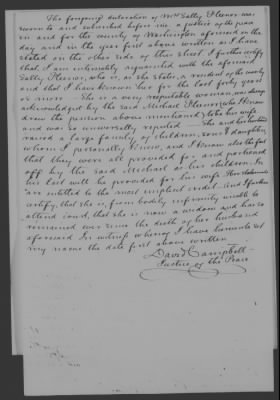 The foregoing declaration of Mrs Sally Fleenor was
sworn to and subscribed before me a justice of the peace
in and for the county of Washington aforesaid on the
day and in the year first above written as I have
stated on the other side of this sheet. I further certify
that I am intimately acquainted with the aforesaid
Sally Fleenor, who is, as she states, a resident of the county
and that I have known her for the last forty years
or more She is a very reputable woman, was always
acknowledged by the said Michael Fleenor (who
drew the pension above mentioned) to be his wife
and was so universally reputed. She and her husband
raised a large family of children, sons & daughters
whom I personally know, and I know also the fact
that they were all provided for and portioned
off by the said Michael as his children. In
his last will he provided for his wife. Her statements
are entitled to the most implicit credit. And I further
certify, that she is, from bodily infirmity unable to
attend court, that she is now a widow and has so
remained ever since the death of her husband
aforesaid. In witness whereof I have hereunto set
my name the date first above written
David Campbell
Justice of the Peace